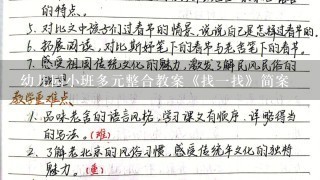 的特点。
5.对比文中孩子们过春节的情景,说说自己是怎样过春节的。
6.拓展阅读,对比斯妤笔下的春节与老舍笔下的春节。
7.感受祖国传统文化的魅力,激发了解民风民俗的
幼儿园小班多元整合教案《找一找》简案
教学重难点:
1.品味老舍的语言风格,学习课文有顺序、详略得当
的写法。(难)
2.了解老北京的风俗习惯,感受传统年文化的独特
魅力。(重)